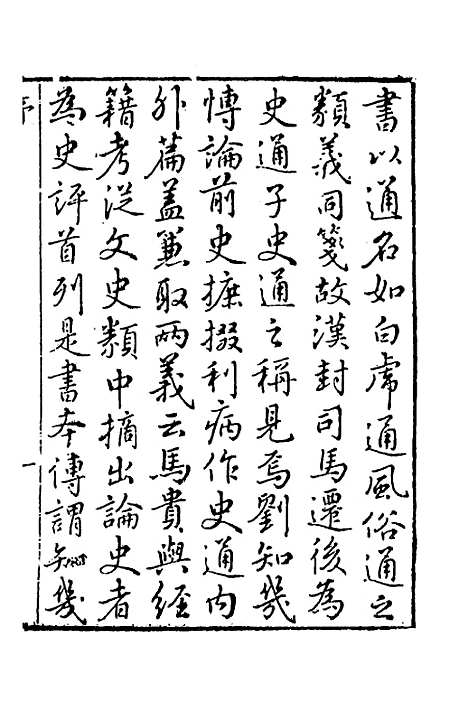 書以通名如白虎通風俗通之
類義同箋故漢封司馬遷後為
史通子史通之稱見焉劉知幾
慱論前史摭掇利病作史通内
外篇蓋兼取兩義云馬貴與經
籍考従文史類中摘出論史者
為史評首列是書本傳謂知幾
序
一